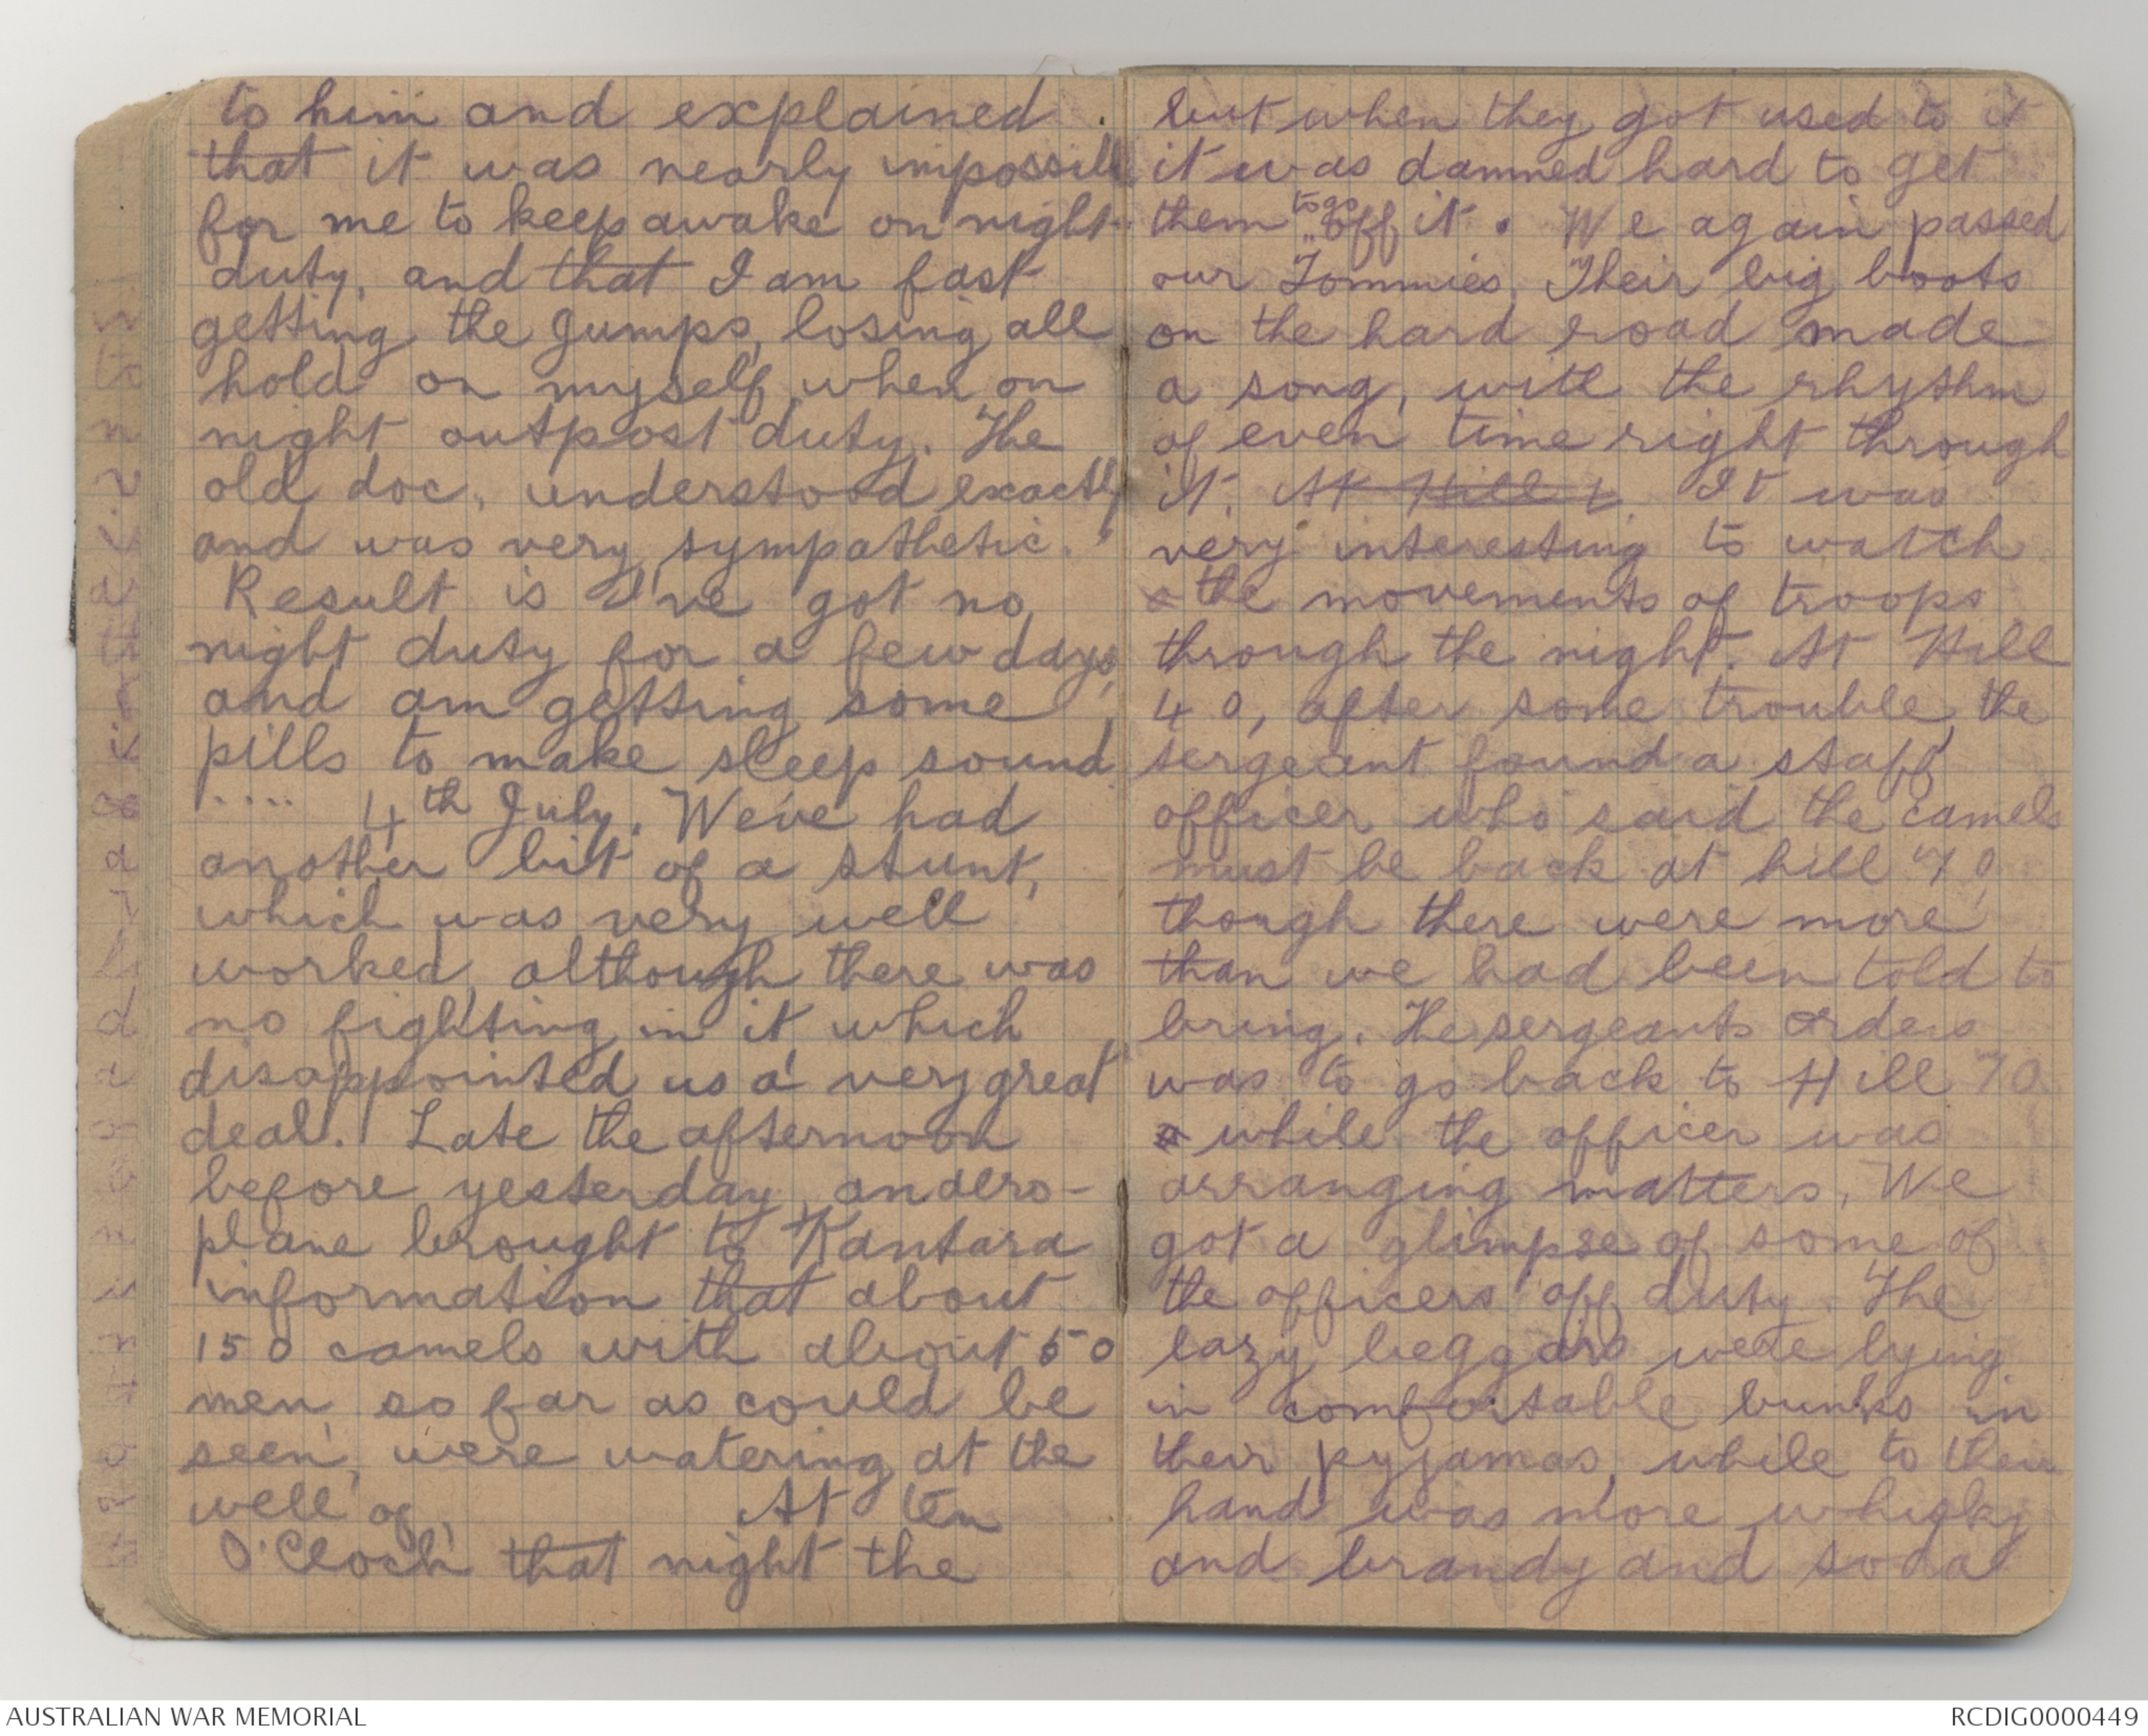 to him and explained.
that it was nearly impossible
for me to keep awake on night
duty, and that I am fast
getting the Jumps, losing all
hold on myself when on
night outpost duty. The
old doc. understood exactly
and was very sympathetic.
Result is I've got no
night duty for a few days,
and am getting some
pills to make sleep sound
.... 4th July. We've had
another bit of a stunt,
which was very well
worked, although there was
no fighting in it which
disappointed us a very great
deal. Late the afternoon
before yesterday, an aero-
plane brought to Kantara
information that about
150 camels with about 50
men, so far as could be
seen, were watering at the
well of, At ten
O'Clock that night the
but when they got used to it
it was damned hard to get
them to go off it. We again passed
our Tommies. Their big boots
on the hard road made
a song, with the rhythm
of even time right through
it. At Hill t It was
very interesting to watch
the movements of troops
through the night. At Hill
40, after some trouble, the
sergeant found a staff
officer who said the camels
must be back at hill 70,
though there were more
than we had been told to
bring. The sergeants orders
was to go back to Hill 70
while the officer was
arranging matters. We
got a glimpse of some of
the officers off duty. The
lazy beggars were lying
in comfortable bunks in
their pyjamas, while to their
hand was more whisky
and brandy and soda
AUSTRALIAN WAR MEMORIAL
RCDIG0000449